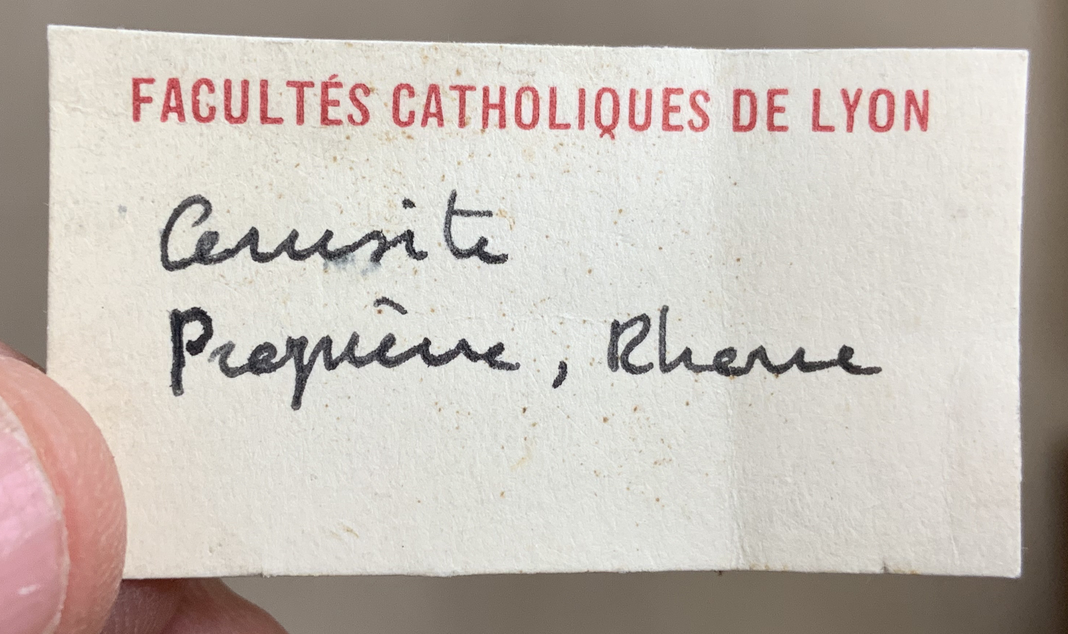 FACULTÉS CATHOLIQUES DE LYON
Cerusite
Propières, Rhone